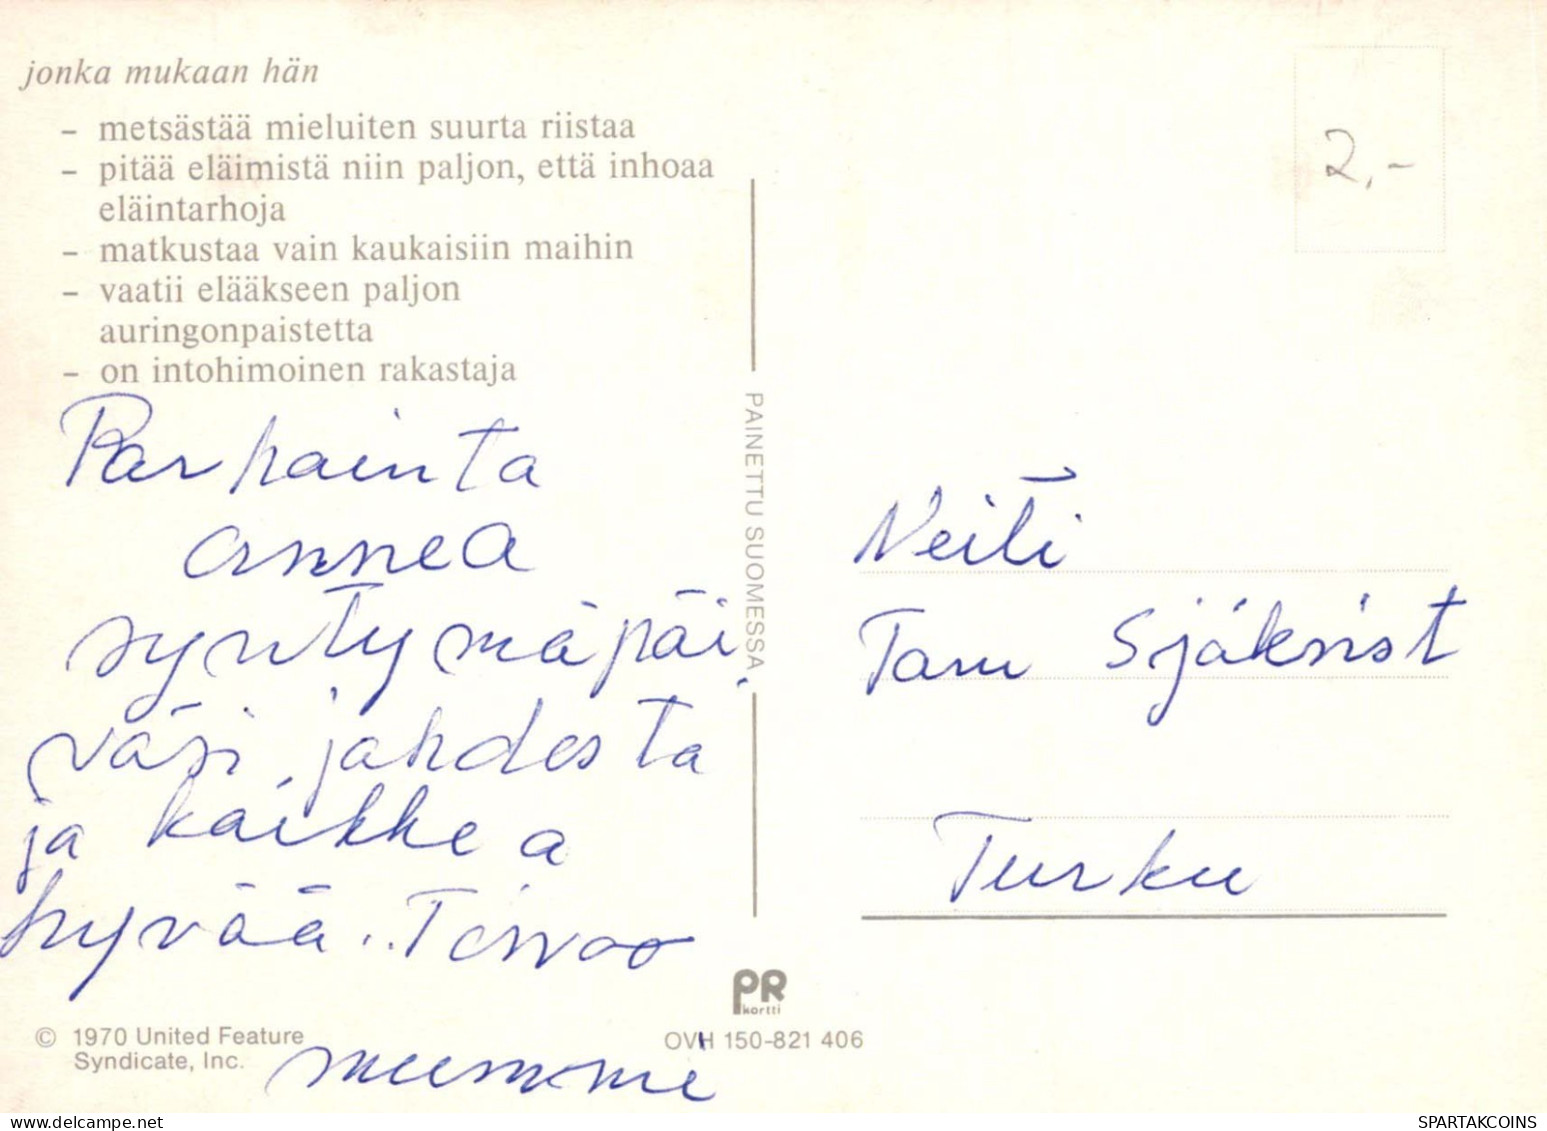 jonka mukaan hän
– metsästää mieluiten suurta riistaa
– pitää eläimistä niin paljon, että inhoaa
eläintarhoja
– matkustaa vain kaukaisiin maihin
– vaatii elääkseen paljon
auringonpaistetta
– on intohimoinen rakastaja
Parhainta
onnea
syntymäpäi
väsi johdosta
ja kaikkea
hyvää. Toivoo
mummi
© 1970 United Feature
Syndicate, Inc.
PAINETTU SUOMESSA
PR
kortti
OVH 150-821 406
2,-
Neiti
Taru
Turku
SPARTAKCOINS